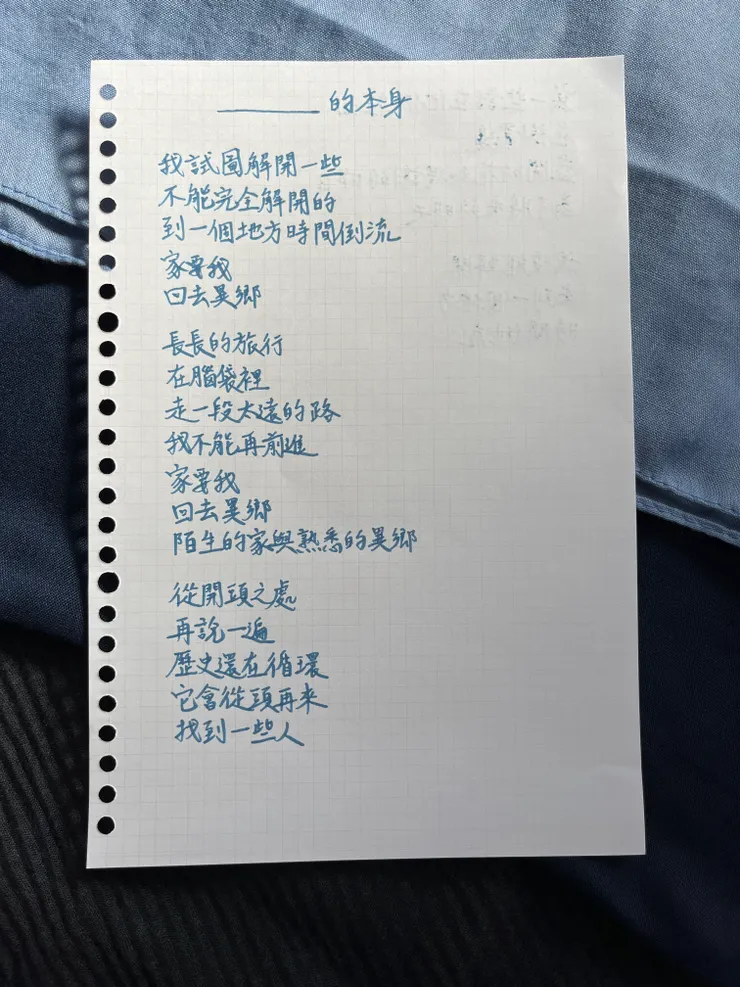 ______的本身
我試圖解開一些
不能完全解開的
到一個地方時間倒流
家要我
回去異鄉
長長的旅行
在腦袋裡
走一段太遠的路
我不能再前進
家要我
回去異鄉
陌生的家與熟悉的異鄉
從開頭之處
再說一遍
歷史還在循環
它會從頭再来
找到一些人